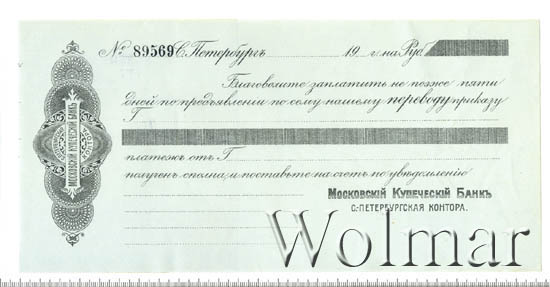 № 89569 С. Петербургъ 19 г. на Руб.
Благоволите заплатить не позже пяти
дней по предъявленіи по сему нашему переводу приказу
Г
платежъ отъ Г
полученъ сполна, и поставьте на счетъ по увѣдомленію
Московскій Купеческій Банкъ
С.-Петербургская Контора.
Московскій Купеческій Банкъ
Wolmar